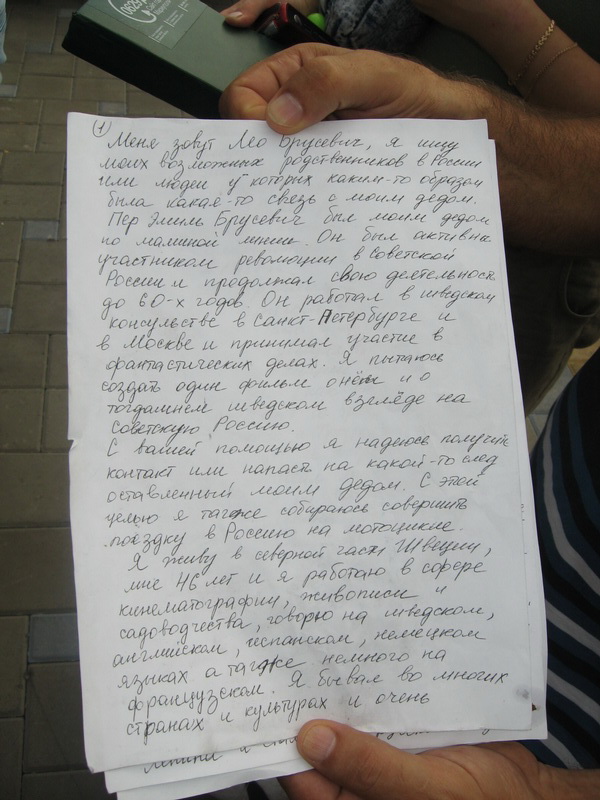 (1)
Меня зовут Лео Брусевич, я ищу
моих возможных родственников в России
или людей у которых каким-то образом
была какая-то связь с моим дедом.
Пер Эмиль Брусевич был моим дедом
по линии. Он был активны
участником революции в Советской
России и продолжал свою деятельность
до 60-х годов. Он работал в шведском
консульстве в Санкт-Петербурге и
в Москве и принимал участие в
фантастических делах. Я пытаюсь
создать один фильм о нём и о
тогдашнем шведском взгляде на
Советскую Россию.
С вашей помощью я надеюсь получить
контакт или напасть на какой-то след
оставленный моим дедом. С этой
целью я также собираюсь совершить
поездку в Россию на мотоцикле.
Я живу в северной части Швеции,
мне 46 лет и я работаю в сфере
кинематографии, живописи и
садоводчества, говорю на шведском,
английском, испанском, немецком
языках а также немного на
французском. Я бывал во многих
странах и культурах и очень